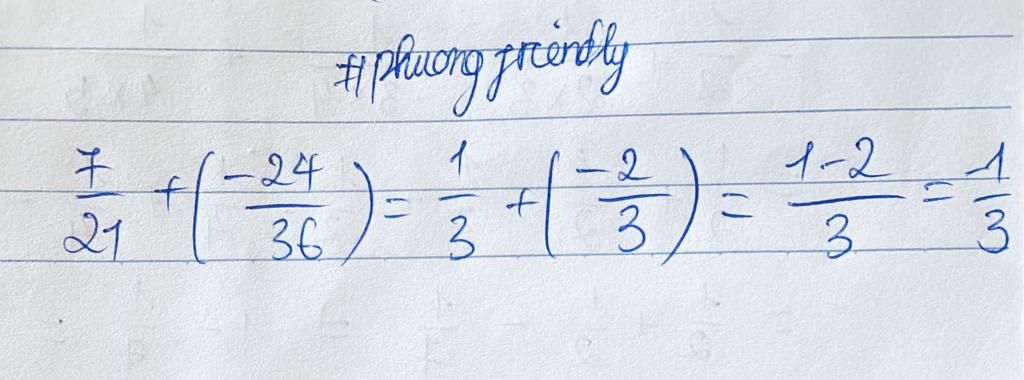 #phuong friendly
7/21 + (-24/36) = 1/3 + (-2/3) = 1-2/3 = -1/3